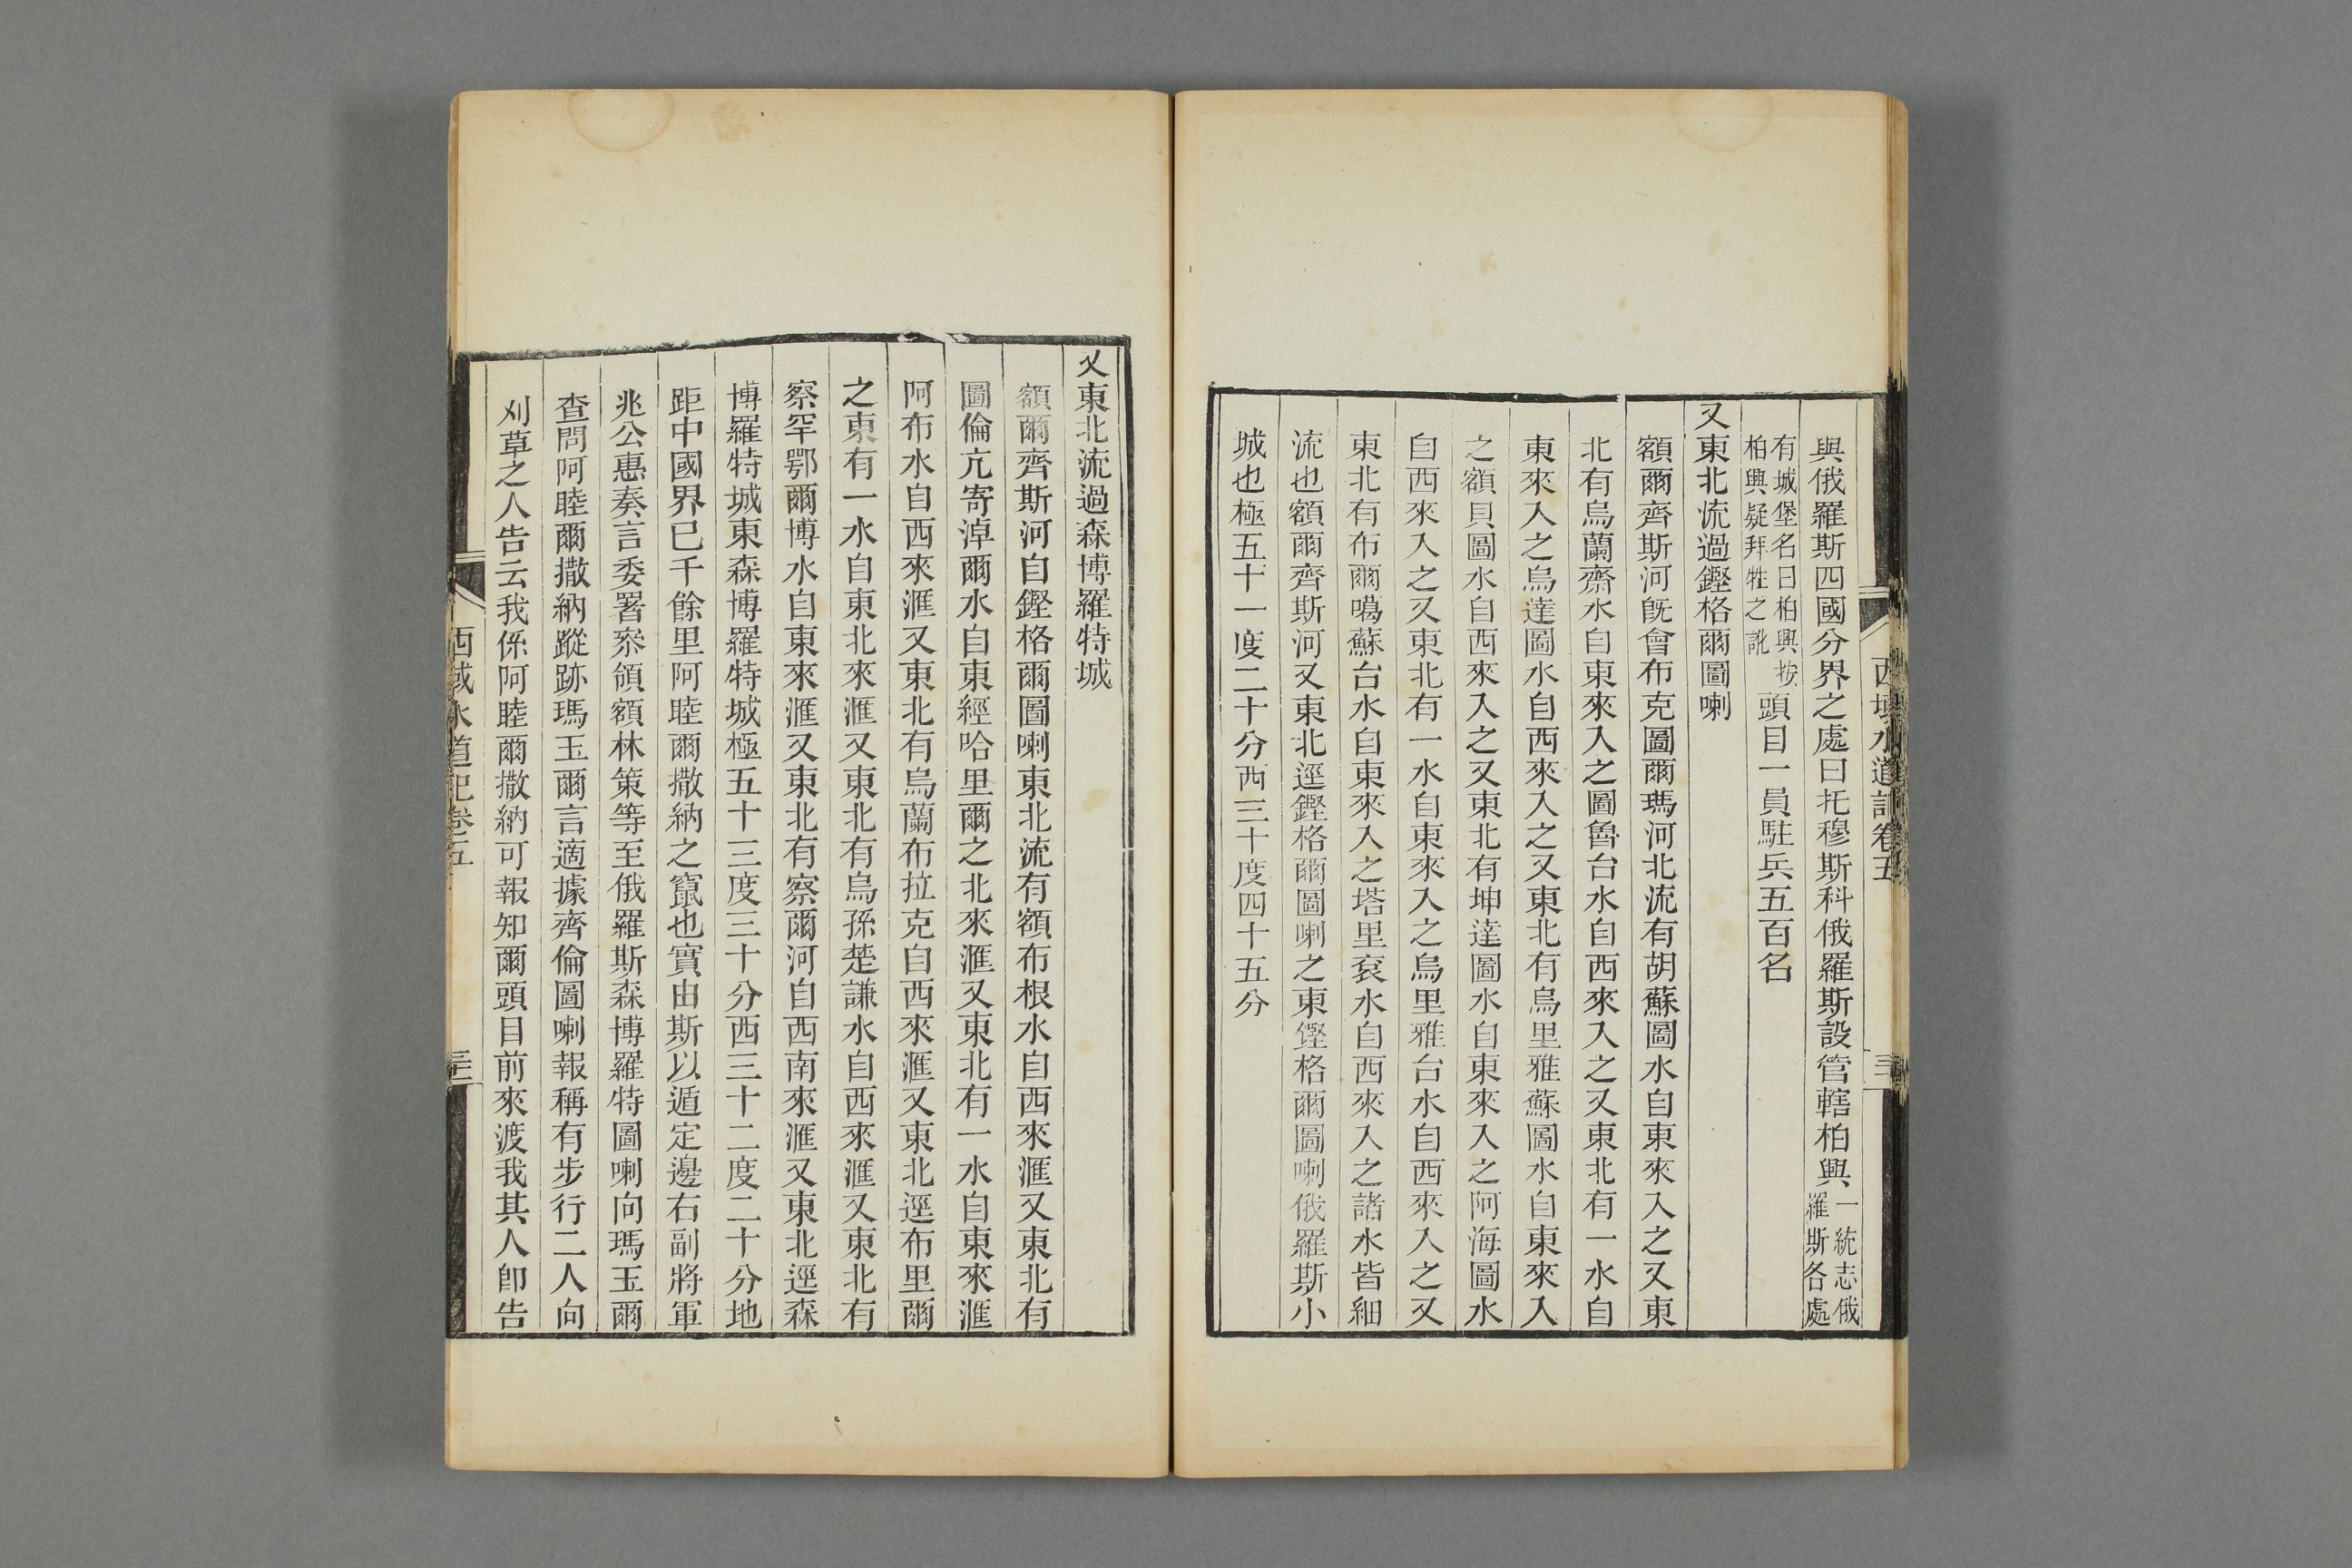 西域水道記卷五
與俄羅斯四國分界之處曰托穆斯科俄羅斯設管轄柏興一統志俄羅斯各處
有城堡名曰柏興按柏興疑拜牲之訛頭目一員駐兵五百名
又東北流過鏗格爾圖喇
額爾齊斯河旣會布克圖爾瑪河北流有胡蘇圖水自東來入之又東
北有烏蘭齋水自東來入之圖魯台水自西來入之又東北有一水自
東來入之烏達圖水自西來入之又東北有烏里雅蘇圖水自東來入
之額貝圖水自西來入之又東北有坤達圖水自東來入之阿海圖水
自西來入之又東北有一水自東來入之烏里雅台水自西來入之又
東北有布爾噶蘇台水自東來入之塔里袞水自西來入之諸水皆細
流也額爾齊斯河又東北逕鏗格爾圖喇之東鏗格爾圖喇俄羅斯小
城也極五十一度二十分西三十度四十五分
又東北流過森博羅特城
額爾齊斯河自鏗格爾圖喇東北流有額布根水自西來滙又東北有
圖倫亢寄淖爾水自東經哈里爾之北來滙又東北有一水自東來滙
阿布水自西來滙又東北有烏蘭布拉克自西來滙又東北逕布里爾
之東有一水自東北來滙又東北有烏孫楚謙水自西來滙又東北有
察罕鄂爾博水自東來滙又東北有察爾河自西南來滙又東北逕森
博羅特城東森博羅特城極五十三度三十分西三十二度二十分地
距中國界已千餘里阿睦爾撒納之竄也實由斯以遁定邊右副將軍
兆公惠奏言委署叅領額林策等至俄羅斯森博羅特圖喇向瑪玉爾
查問阿睦爾撒納蹤跡瑪玉爾言適據齊倫圖喇報稱有步行二人向
刈草之人告云我係阿睦爾撒納可報知爾頭目前來渡我其人卽告
西域水道記卷五